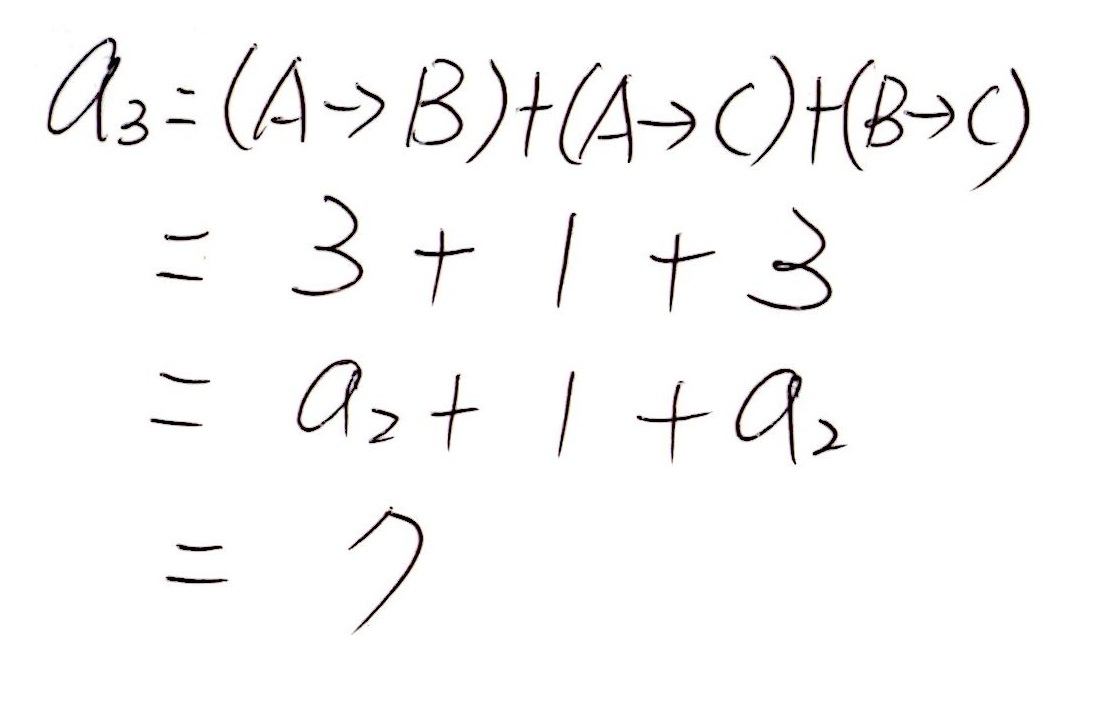 a₃=(A→B)+(A→C)+(B→C)
= 3 + 1 + 3
= a₂ + 1 + a₂
= 7